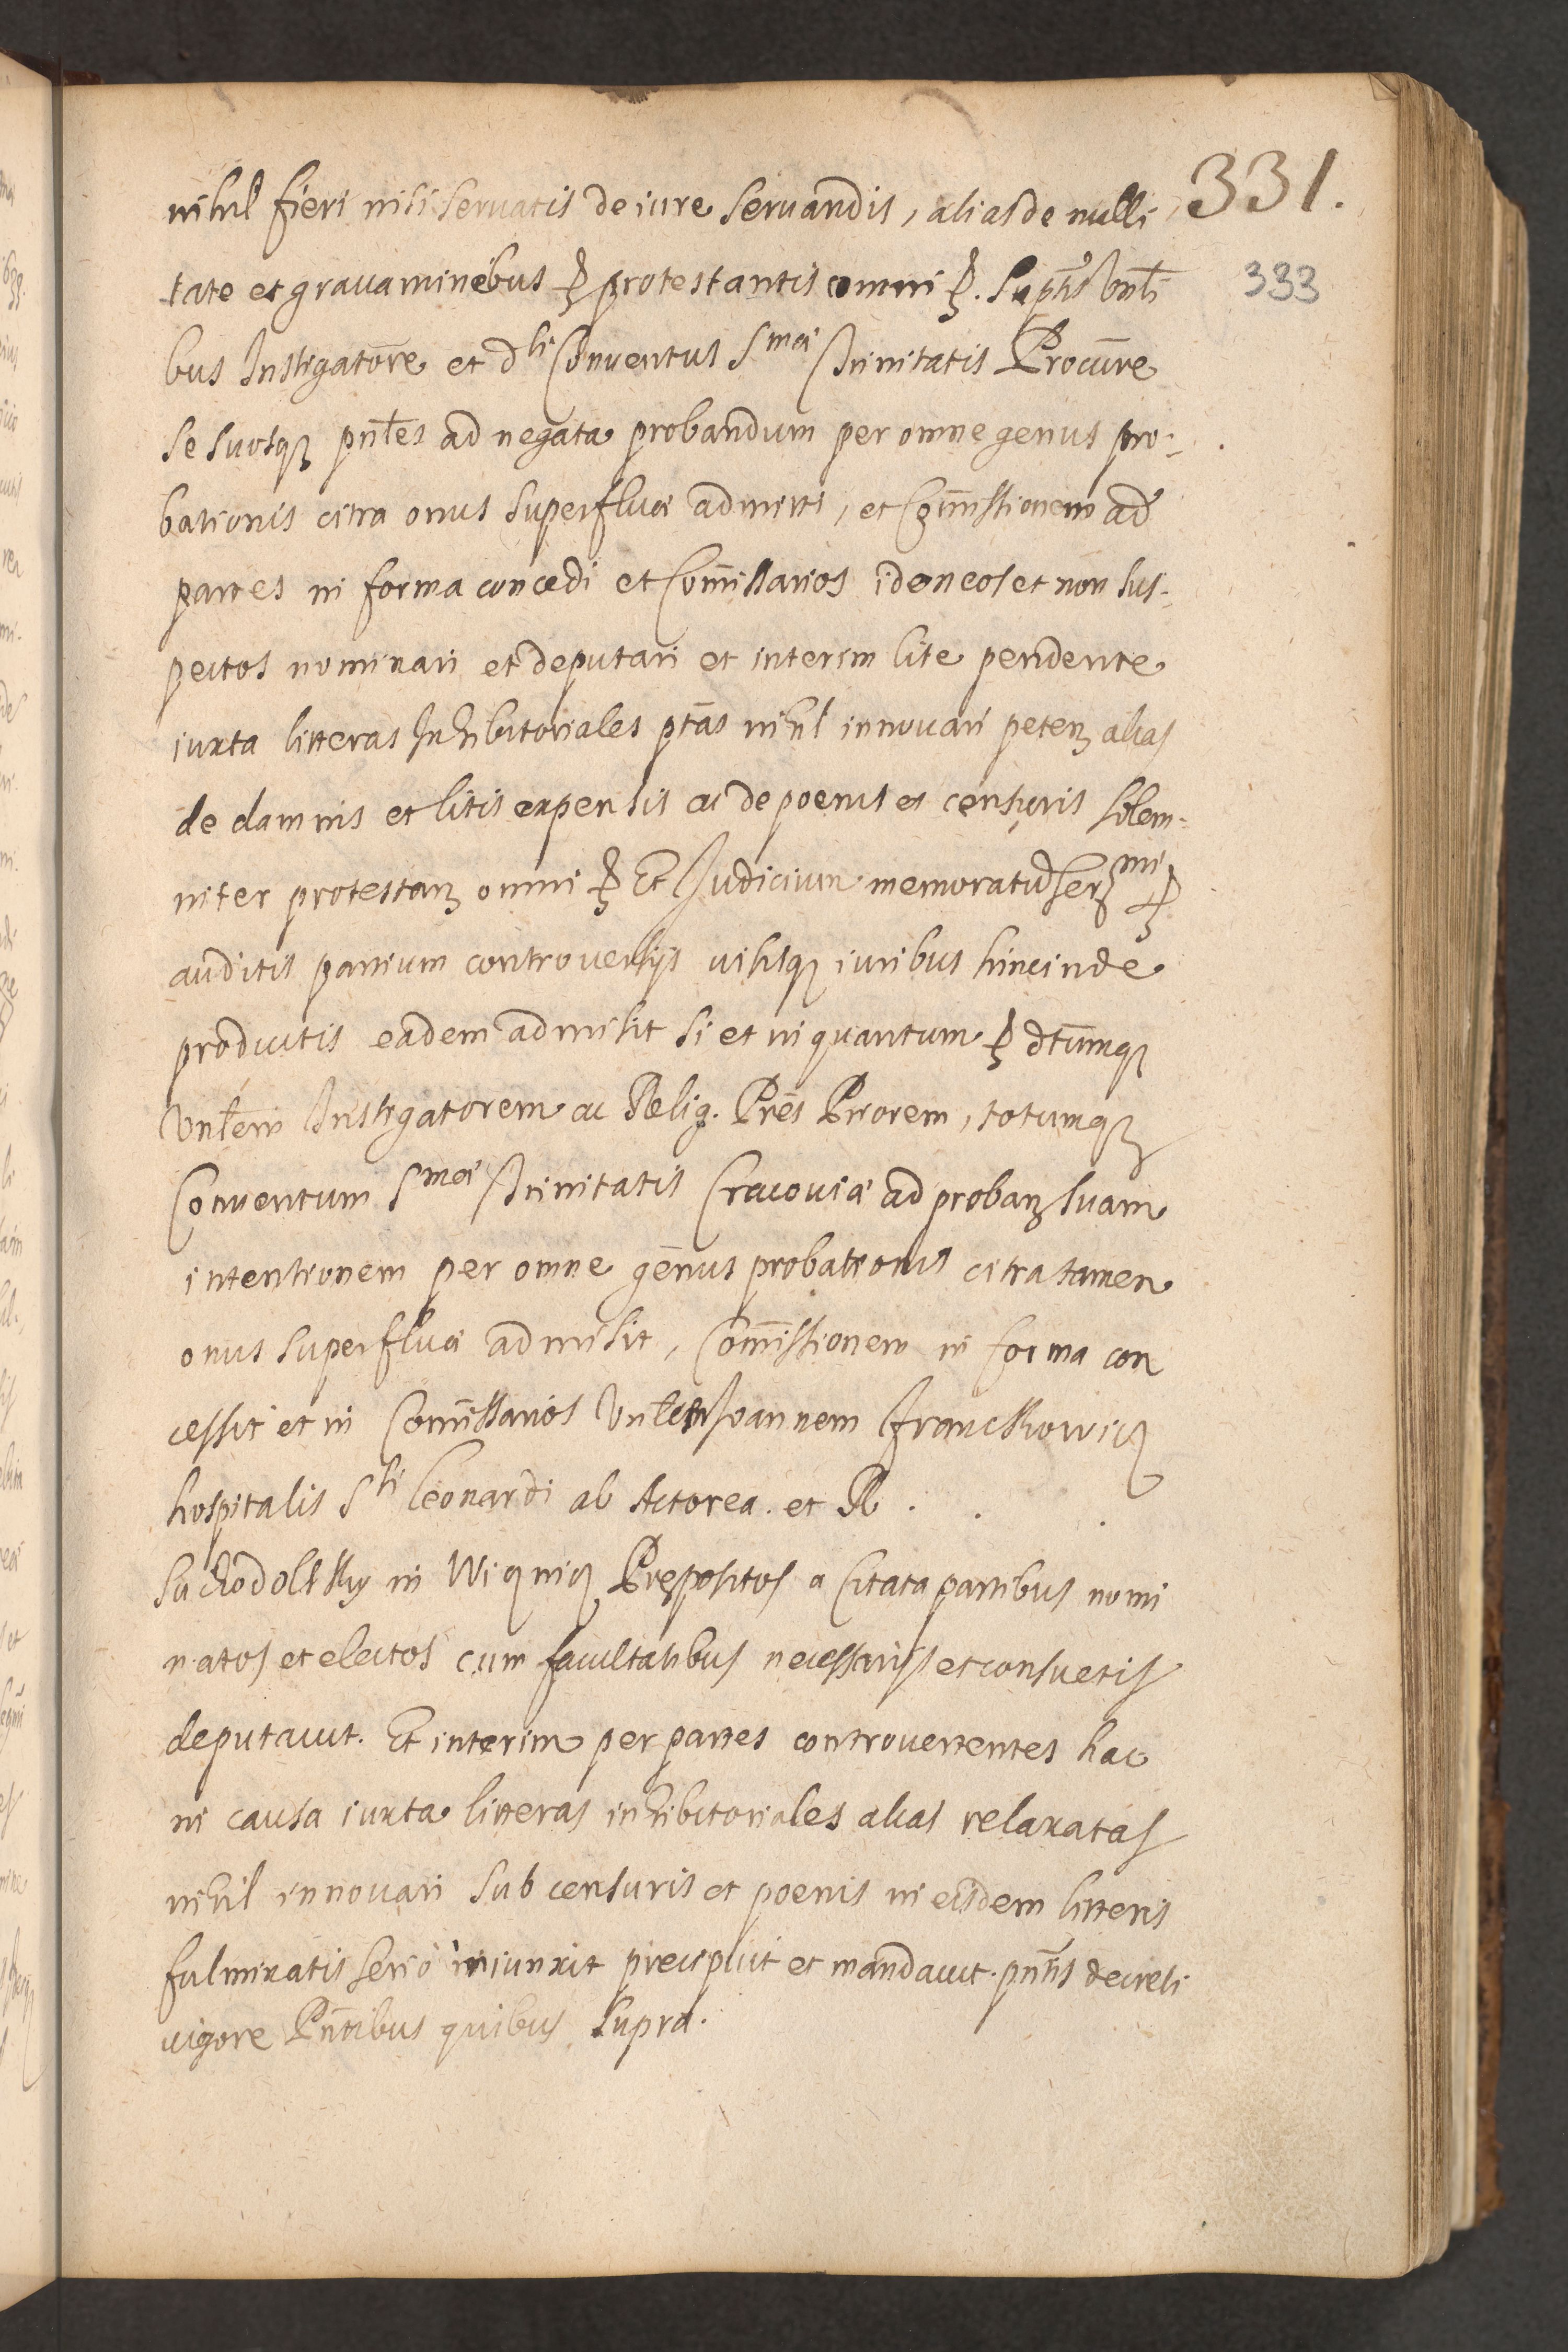 331.
nihil fieri nisi servatis de iure servandis, alias de nulli
333
tate et gravaminibus protestantis omni
bus Instigatore et dti Conventus Smæ Trinitatis Procure
se suosq pntes ad negata probandum per omne genus pro-
bationis citra onus superfluæ admitti, et Comissionem ad
partes in forma concedi et Comissarios idoneos et non sus-
pectos nominari et deputari et interim lite pendente
iuxta litteras Inhibitoriales ptas nihil innovari peten alias
de damnis et litis expensis ac de poenis et censuris solem-
niter protestan omni Et Judicium memoratu
auditis partium controversijs visisq iuribus hincinde
productis eadem admisit si et in quantum dtumq
Vnlem Instigatorem ac Relig. Pres Priorem, totumq
Conventum Smæ Trinitatis Cracoviæ ad proban suam
intentionem per omne genus probationis citra tamen
onus superfluæ admisit, Comissionem in forma con
cessit et in Comissarios Joannem Franckowicz
hospitalis Sti Leonardi ab Actorea. et R.
Suchodolsky in Præpositos a Citata partibus nomi
natos et electos cum facultatibus necessarijs et consuetis
deputavit. Et interim per partes controvertentes hac
in causa iuxta litteras inhibitoriales alias relaxatas
nihil innovari sub censuris et poenis in eisdem litteris
fulminatis serio iniunxit precipuit et mandavit. pntis decreti
vigore Pntibus quibus supra.